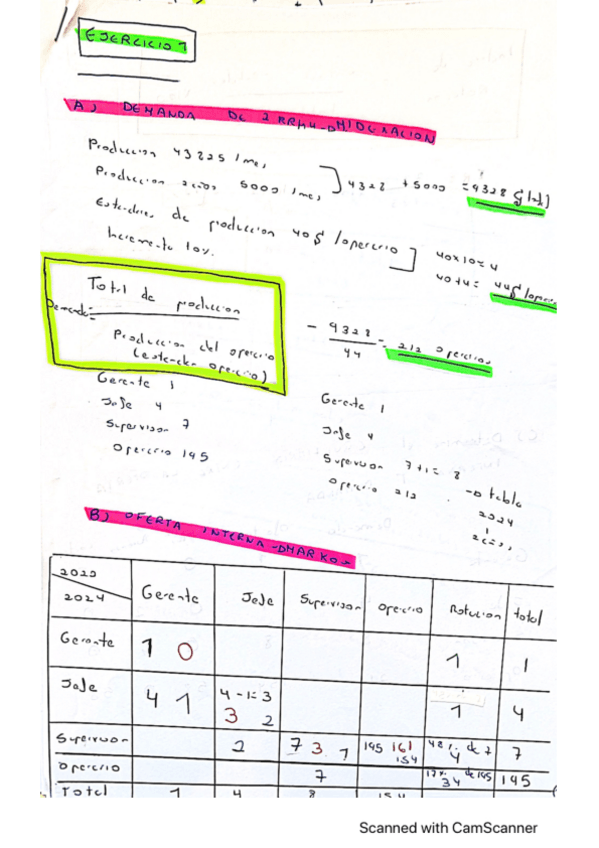 EJERCICIO 1
A) DEMANDA DE
Produccion 43225 / mes
Produccion 5000 / mes
4328 + 5000 = 9328
Estandar de produccion 40 / operario
Incremento 10%
40 x 10 = 4
40 + 4 =
Total de produccion
Demanda =
Produccion del operario
(estandar operario)
- 9328 / 44 = 212 operarios
Gerente 1
Jefe 4
Supervisor 7
Operario 145
Gerente 1
Jefe 4
Supervisor 7+1= 8
Operario 212
tabla
2024
B) OFERTA INTERNA MARKO
2023 Gerente Jefe Supervisor operario Rotacion total
2024
Gerente 1 0 1 1
Jefe 4 1 4-1=3 1 4
3 2
Supervisor 2 7 3 1 145 161 48% de 7 7
154 4
operario 7 17% de 145 145
34
Total 1 4 8 154
Scanned with CamScanner